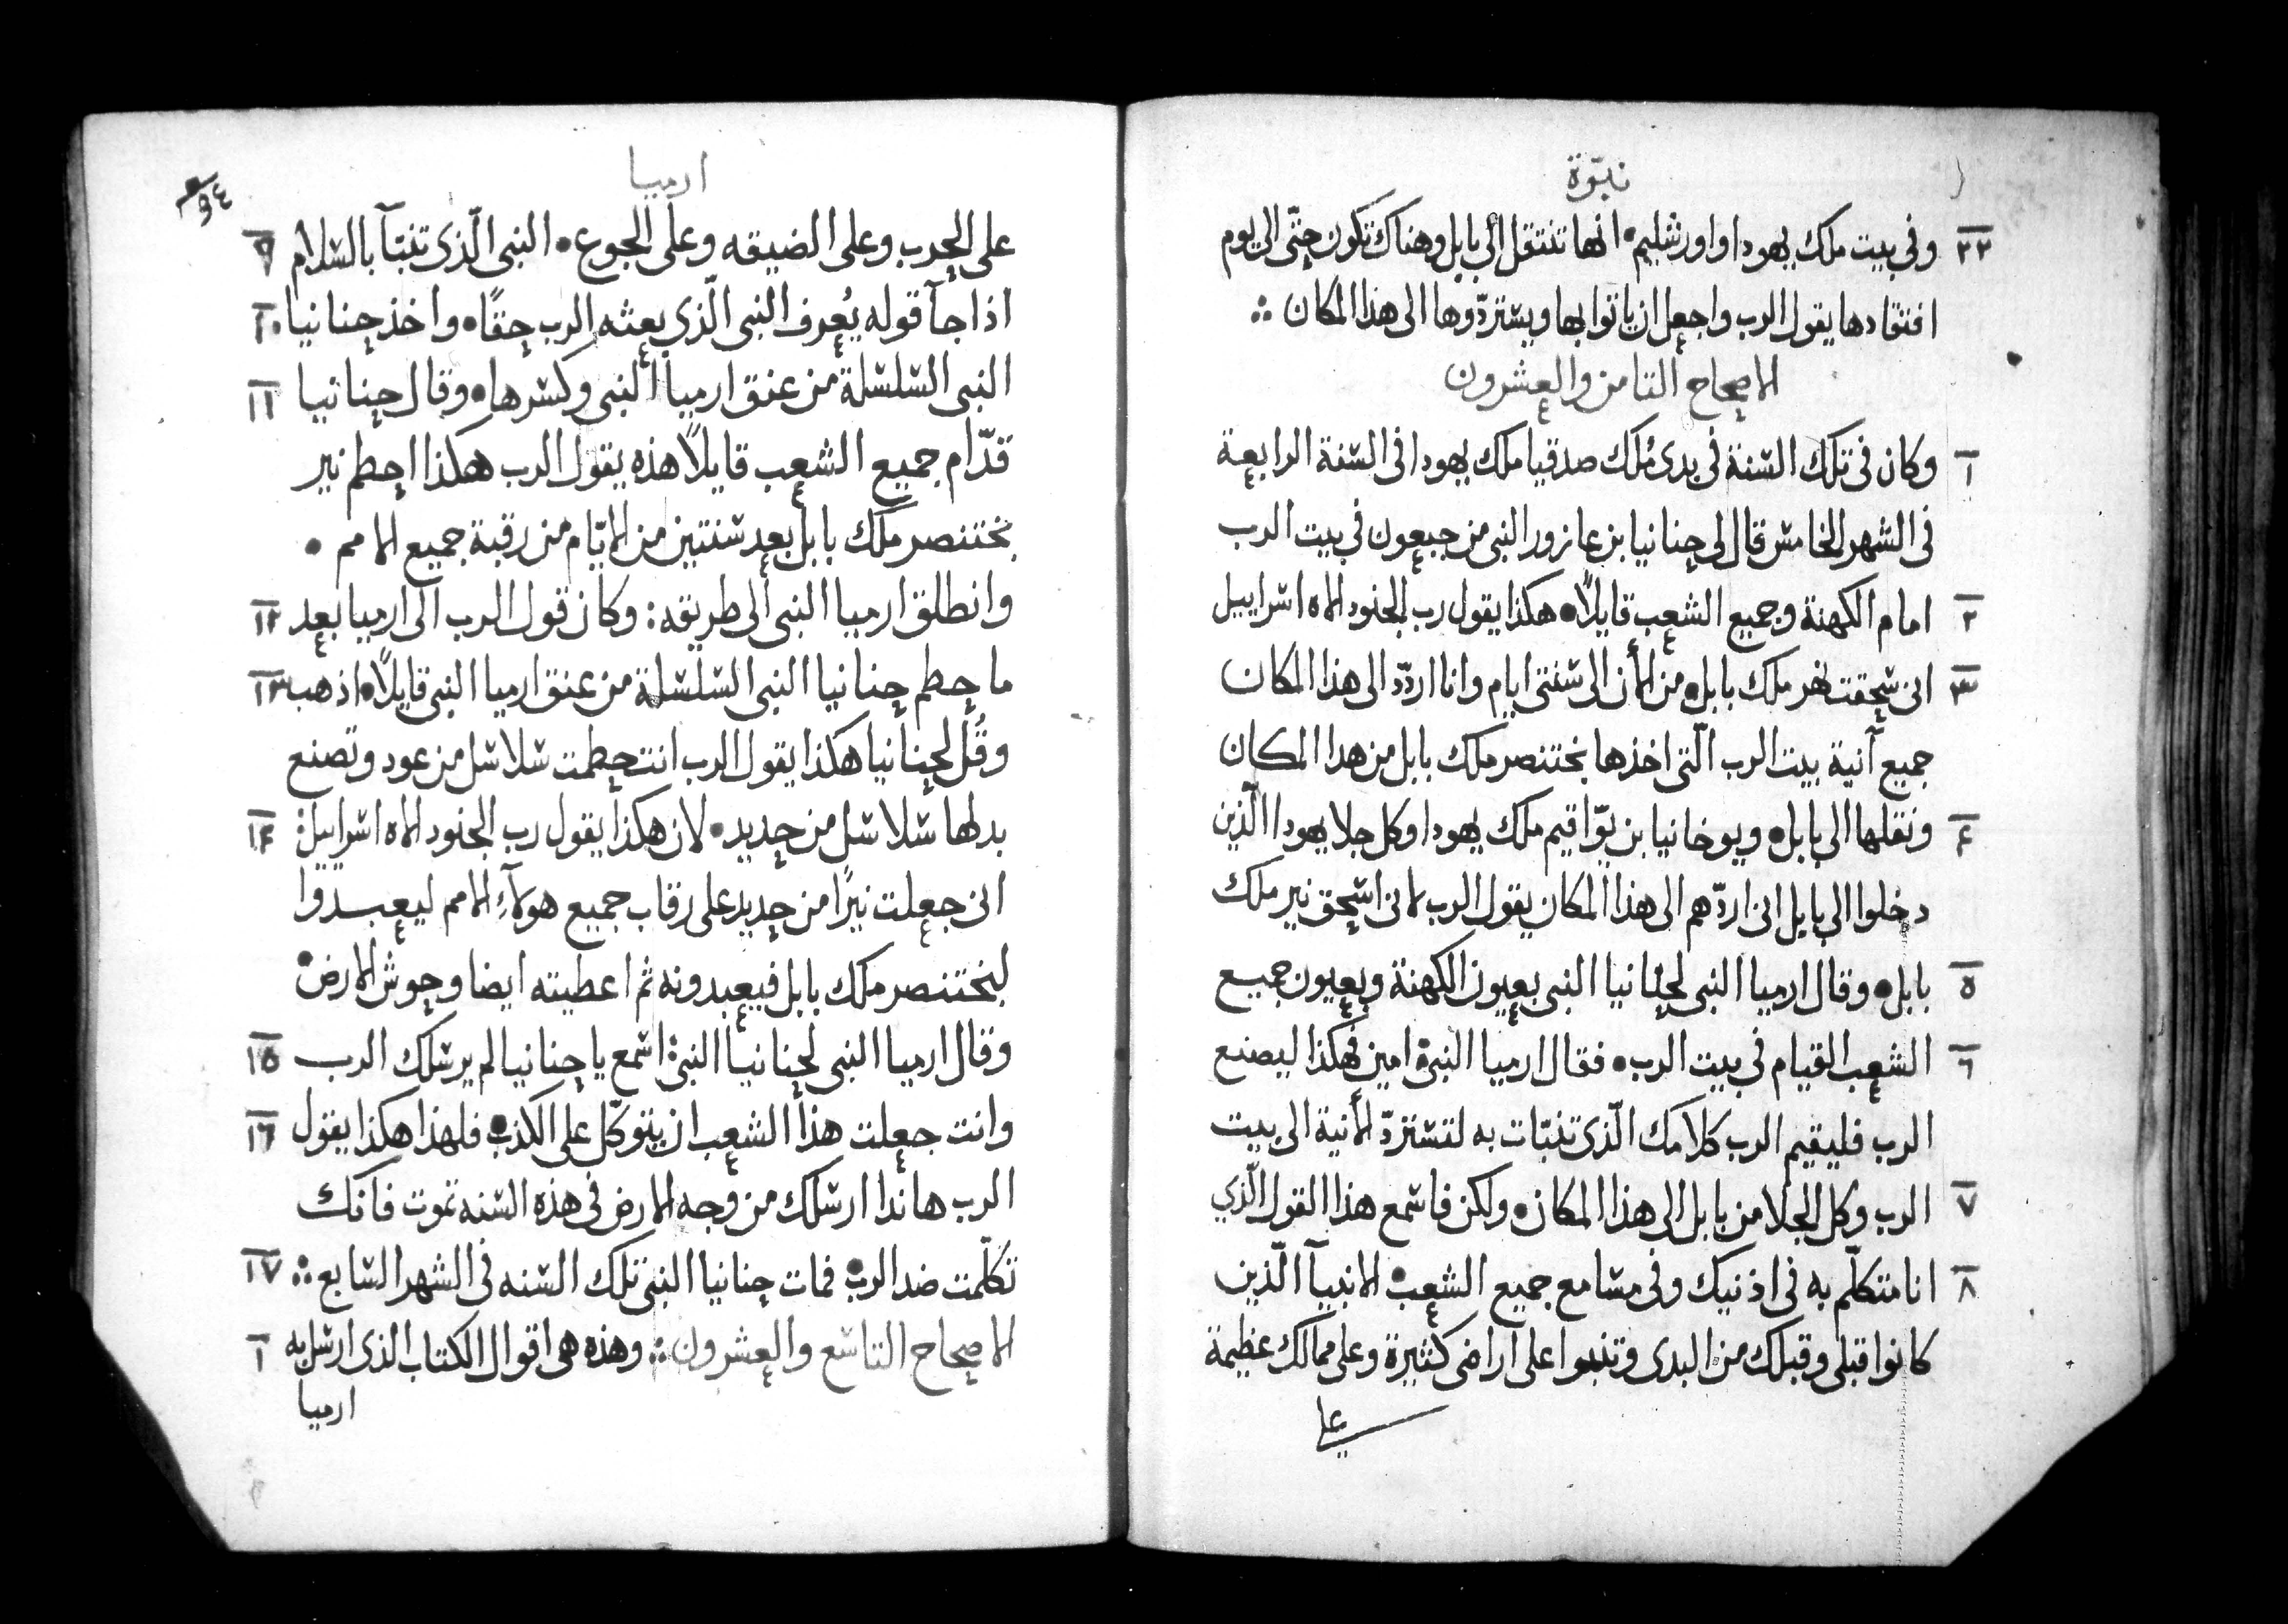 نبوّة
٢٢ وفى بيت ملك يهودا واورشليم • انها تنتقل الى بابل وهناك تكون حتّى الى يوم
افتقادها يقول الرب واجعل ان ياتوا بها ويستردّوها الى هذا المكان ∴
الاصحاح الثامن والعشرون
١ وكان فى تلك السنة فى بدى مُلك صدقيا ملك يهودا فى السنة الرابعة
فى الشهر الخامس قال لى حنانيا بن عازور النبى من جبعون فى بيت الرب
٢ امام الكهنة وجميع الشعب قايلاً • هكذا يقول رب الجنود الاه اسراييل
٣ انى سحقت نير ملك بابل • من الأن الى سنتى ايام وانا اردّد الى هذا المكان
جميع آنية بيت الرب الّتى اخذها بختنصر ملك بابل من هدا المكان
٤ ونقلها الى بابل • ويوخانيا بن يوّاقيم ملك يهودا وكل جلا يهودا الّذين
دخلوا الى بابل انى اردّهم الى هذا المكان يقول الرب لانى اسحق نير ملك
٥ بابل • وقال ارميا النبى لحنانيا النبى بعيون الكهنة وبعيون جميع
٦ الشعب القيام فى بيت الرب • فقال ارميا النبى • امين فهكذا ليصنع
الرب فليقيم الرب كلامك الّذى تنبّات به لتستردّ الأنية الى بيت
٧ الرب وكل الجلا من بابل الى هذا المكان • ولكن فاسمع هذا القول الّذي
٨ انا متكلّم به فى اذنيك وفى مسامع جميع الشعب • الانبيآ الّذين
كانوا قبلى وقبلك من البدى وتنبوا على اراضى كثيرة وعلى ممالك عظيمة
على
ارميا
٩٤
٩ على الحرب وعلى الضيقه وعلى الجوع • النبى الّذى تنبّآ بالسلام
١٠ اذا جآ قوله يُعرف النبى الّذى بعثه الرب حقًا • واخذ حنانيا
١١ النبى السلسلة من عنق ارميا النبى وكسرها • وقال حنانيا
قدّام جميع الشعب قايلاً هذه يقول الرب هكذا احطم نير
بختنصر ملك بابل بعد سنتين من الايّام من رقبة جميع الامم •
١٢ وانطلق ارميا النبى الى طريقه : وكان قول الرب الى ارميا بعد
١٣ ما حطم حنانيا النبى السلسلة من عنق ارميا النبى قايلاً • اذهب
وقُل لحنانيا هكذا يقول الرب انت حطمت سلاسل من عود وتصنع
١٤ بدلها سلاسل من حديد • لان هكذا يقول رب الجنود الاه اسراييل :
انى جعلت نيرًا من حديد على رقاب جميع هولآءِ الامم ليعبدوا
لبختنصر ملك بابل فيعبدونه ثم اعطيته ايضا وحوش الارض •
١٥ وقال ارميا النبى لحنانيا النبى : اسمع يا حنانيا لم يرسلك الرب
١٦ وانت جعلت هذا الشعب ان يتوكّل على الكذب • فلهذا هكذا يقول
الرب هانذا ارسلك من وجه الارض فى هذه السنه تموت فانك
١٧ تكلّمت ضد الرب • فمات حنانيا النبى تلك السنه فى الشهر السابع ∴
١ الاصحاح التاسع والعشرون ∴ وهذه هى اقوال الكتاب الذى ارسل به
ارميا